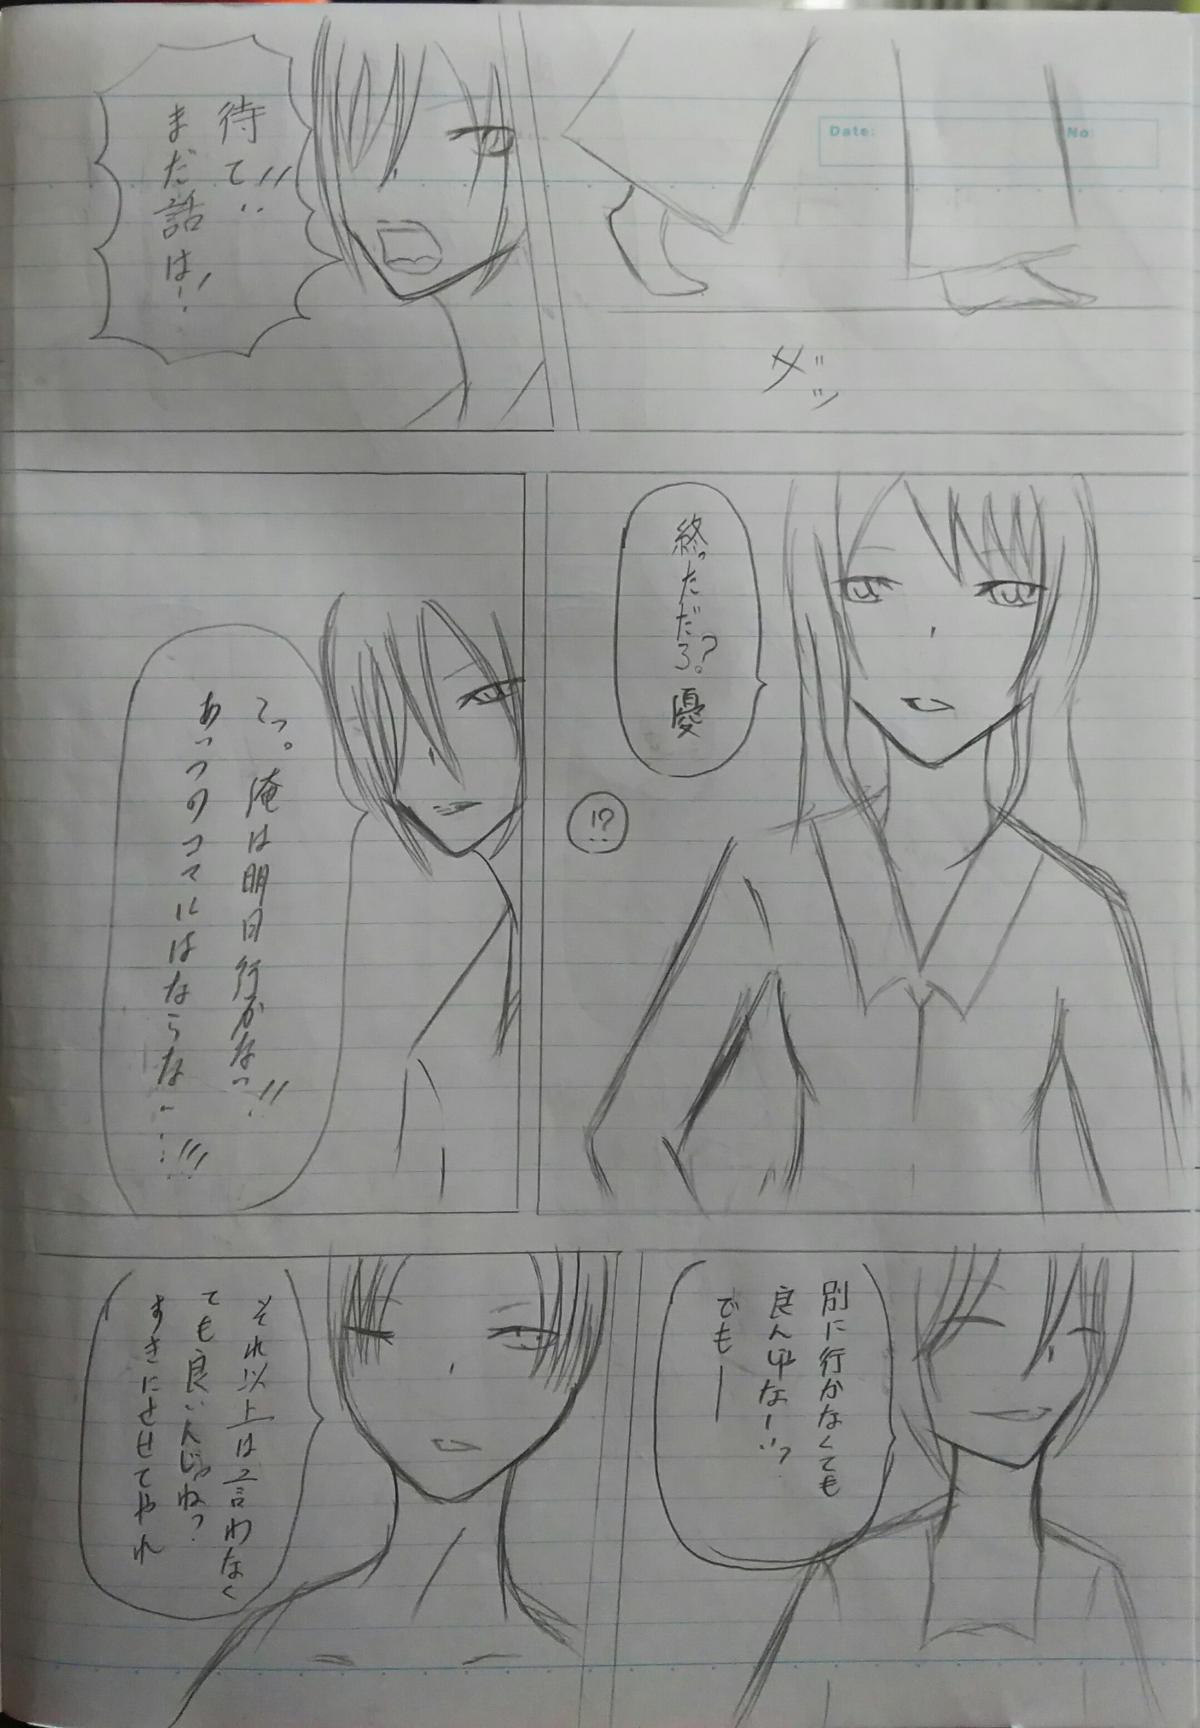 Date:
No:
ダッ
待て!!
まだ話は!
終っただろ?。優
!?
てっ。俺は明日行かなっ!!
あっつのコマにはならな…!!!
別に行かなくても
良んぢなーいっ
でもー
それ以上は言わなく
ても良いんじゃね?
すきにさせてやれ